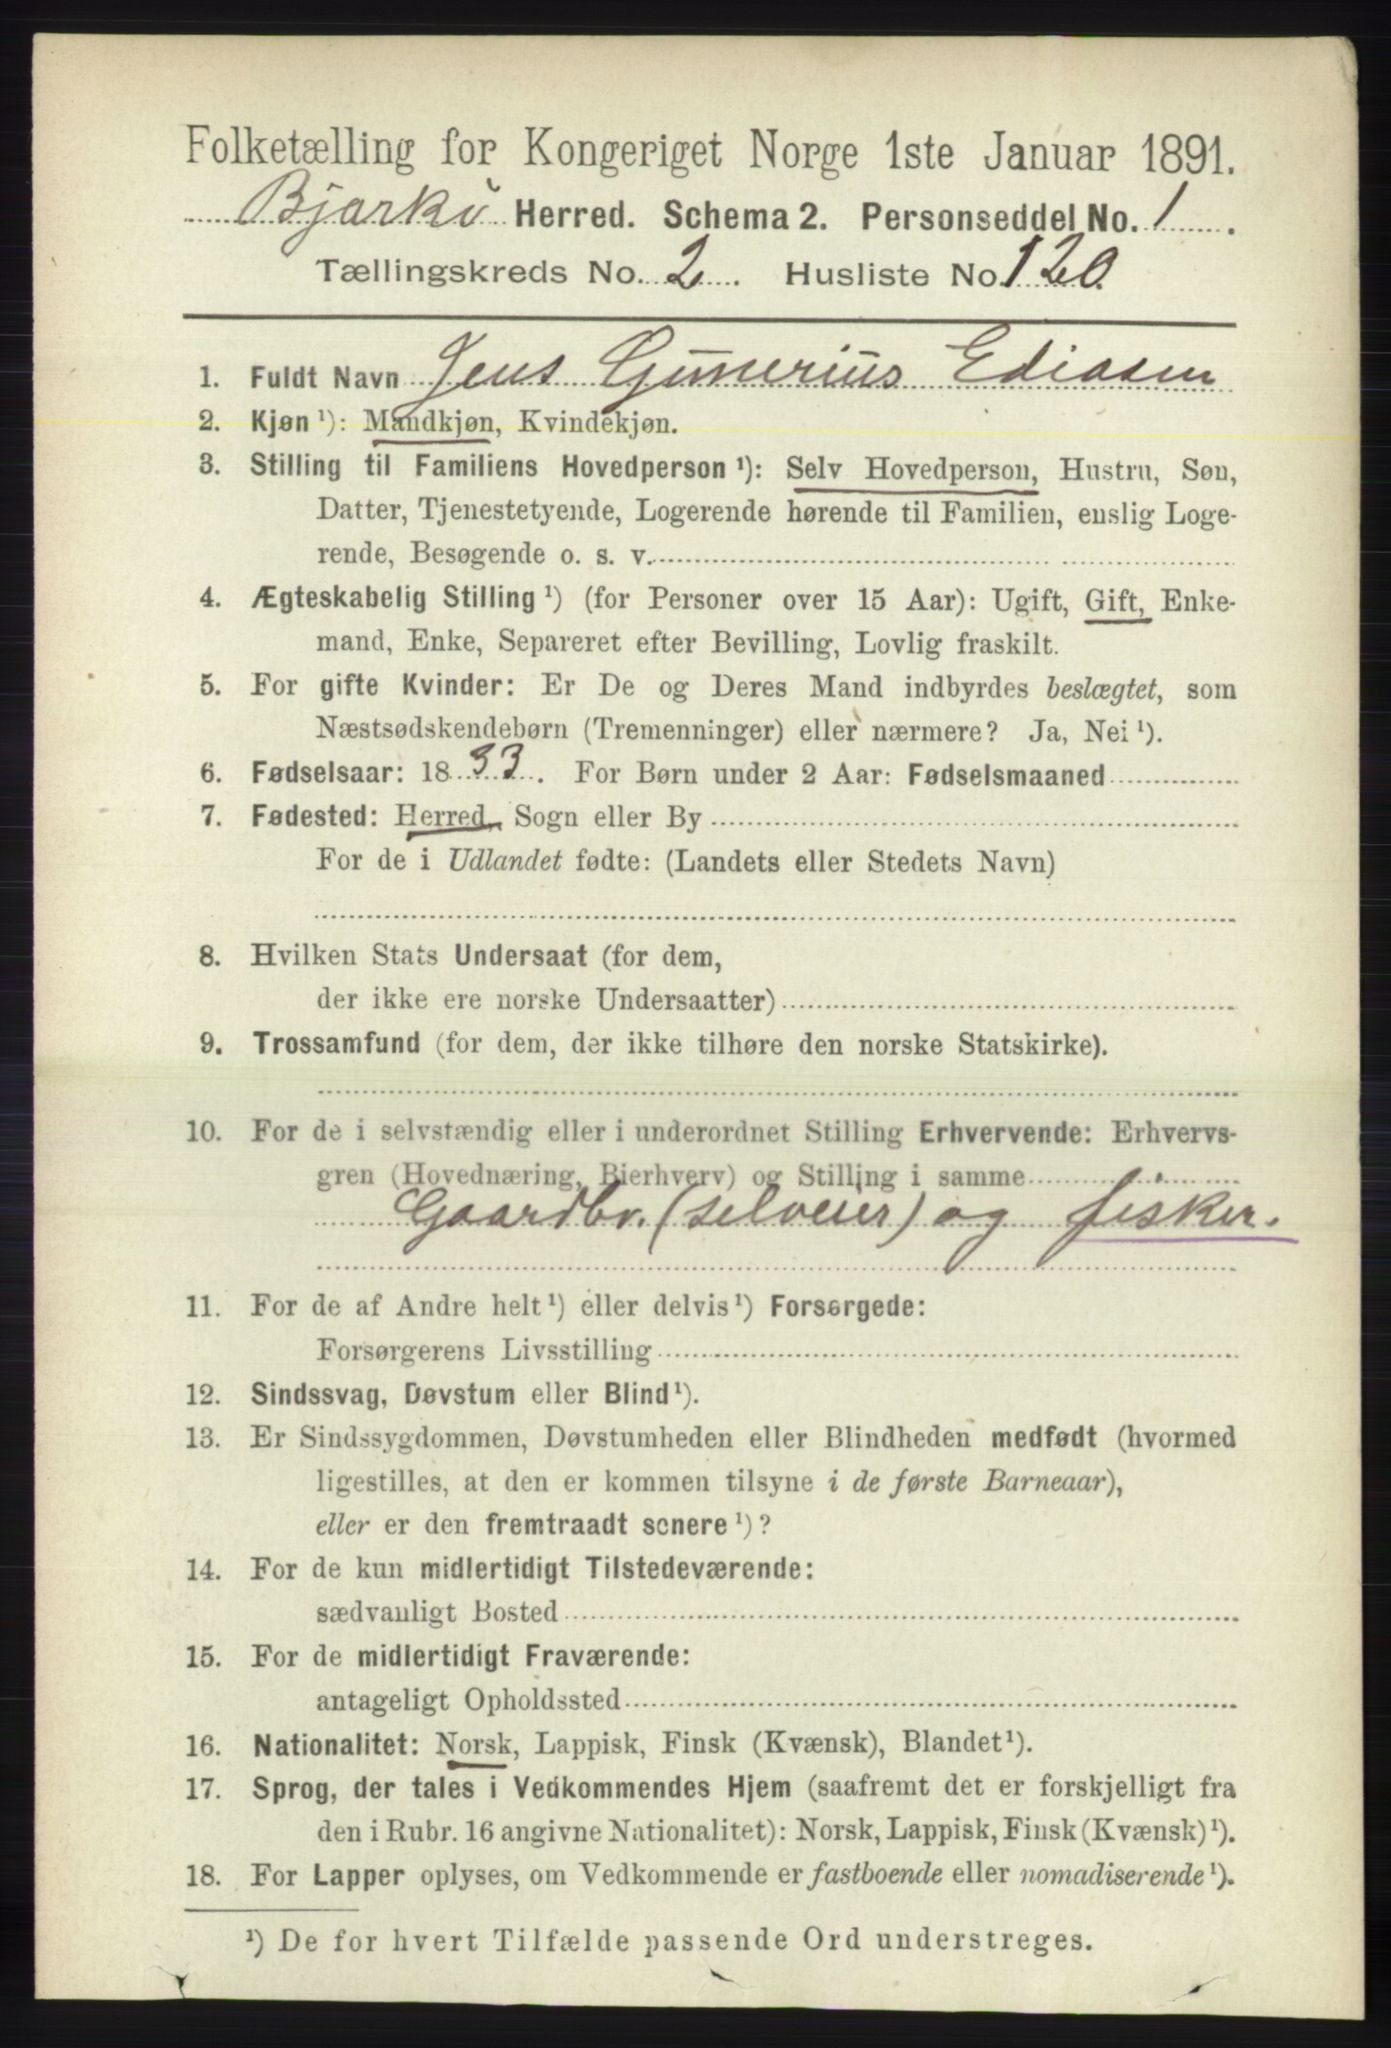 Folketælling for Kongeriget Norge 1ste Januar 1891.
Bjarkö Herred. Schema 2. Personseddel No. 1.
Tællingskreds No. 2. Husliste No. 120.
1. Fuldt Navn Jens Gunerius Ediasen
2. Kjøn ¹): Mandkjøn, Kvindekjøn.
3. Stilling til Familiens Hovedperson ¹): Selv Hovedperson, Hustru, Søn,
Datter, Tjenestetyende, Logerende hørende til Familien, enslig Loge-
rende, Besøgende o. s. v.
4. Ægteskabelig Stilling ¹) (for Personer over 15 Aar): Ugift, Gift, Enke-
mand, Enke, Separeret efter Bevilling, Lovlig fraskilt.
5. For gifte Kvinder: Er De og Deres Mand indbyrdes beslægtet, som
Næstsødskendebørn (Tremenninger) eller nærmere? Ja, Nei ¹).
6. Fødselsaar: 1833. For Børn under 2 Aar: Fødselsmaaned
7. Fødested: Herred, Sogn eller By
For de i Udlandet fødte: (Landets eller Stedets Navn)
8. Hvilken Stats Undersaat (for dem,
der ikke ere norske Undersaatter)
9. Trossamfund (for dem, der ikke tilhøre den norske Statskirke).
10. For de i selvstændig eller i underordnet Stilling Erhvervende: Erhvervs-
gren (Hovednæring, Bierhverv) og Stilling i samme
Gaardbr. (selveier) og fisker.
11. For de af Andre helt ¹) eller delvis ¹) Forsørgede:
Forsørgerens Livsstilling
12. Sindssvag, Døvstum eller Blind ¹).
13. Er Sindssygdommen, Døvstumheden eller Blindheden medfødt (hvormed
ligestilles, at den er kommen tilsyne i de første Barneaar),
eller er den fremtraadt senere ¹)?
14. For de kun midlertidigt Tilstedeværende:
sædvanligt Bosted
15. For de midlertidigt Fraværende:
antageligt Opholdssted
16. Nationalitet: Norsk, Lappisk, Finsk (Kvænsk), Blandet ¹).
17. Sprog, der tales i Vedkommendes Hjem (saafremt det er forskjelligt fra
den i Rubr. 16 angivne Nationalitet): Norsk, Lappisk, Finsk (Kvænsk) ¹).
18. For Lapper oplyses, om Vedkommende er fastboende eller nomadiserende ¹).
¹) De for hvert Tilfælde passende Ord understreges.